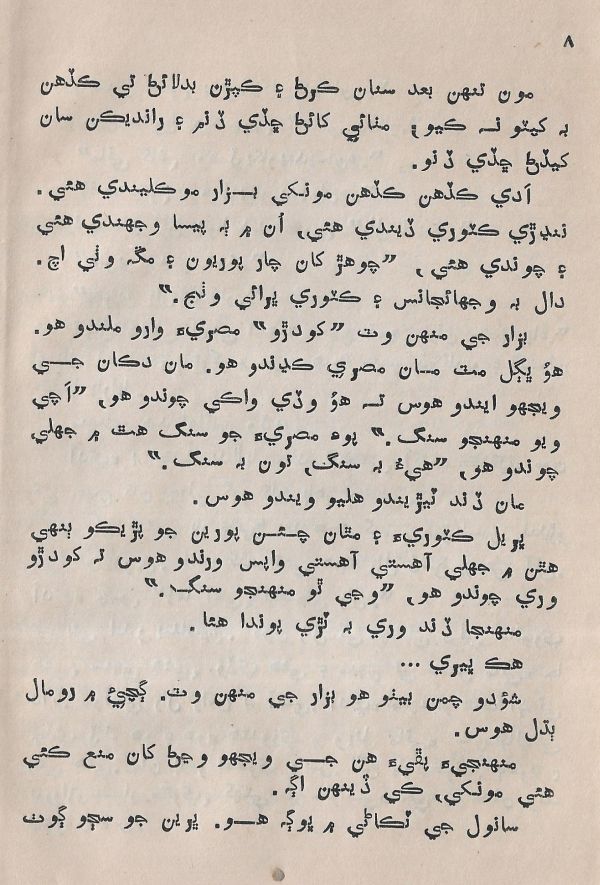 ۸
مون تنهن بعد سنان ڪرڻ ۽ ڪپڙن بدلائڻ تي ڪڏهن
به ڪيٽو نـه ڪيو؛ مٺائي کائڻ ڇڏي ڏنم ۽ رانديڪن سان
کيڏڻ ڇڏي ڏنو.
اَدي ڪڏهن ڪڏهن مونکي بــزار موڪليندي هئي.
ننڍڙي ڪٽوري ڏيندي هئي، اُن ۾ ٻه پيسا وجهندي هئي
۽ چوندي هئي، ”چوهڙ کان چار پوريون ۽ مڱه وٺي اچ.
دال به وجهائجانس ۽ ڪٽوري ڀرائي وٺج.“
بزار جي منهن وٽ ”کودڙو“ مصريءَ وارو ملندو هو.
هوُ ڀڳل مٽ مــان مصري ڪڍندو هو. مان دڪان جــي
ويجهو ايندو هوس تــه هوُ وڏي واڪي چوندو هو، ”اَچي
ويو منهنجو سنگ.“ پوءِ مصريءَ جو سنگ هٿ ۾ جهلي
چوندو هو، ”هيءُ به سنگ، تون به سنگ.“
مان ڏند ٽيڙيندو هليو ويندو هوس.
ڀريل ڪٽوريءَ ۽ مٿان چــئــن پورين جو پڙيڪو ٻنهي
هٿن ۾ جهلي آهستي آهستي واپس ورندو هوس ته کودڙو
وري چوندو هو، ”وڃي ٿو منهنجو سنگــ.“
منهنجا ڏند وري به نڙي پوندا هئا.
هڪ ڀيري ...
شوُدو چمن بيٺو هو بزار جي منهن وٽ. ڳچيءَ ۾ رومال
ٻڌل هوس.
منهنجيءَ پڦيءَ هن جــي ويجهو وڃڻ کان منع ڪئي
هئي مونکي، ڪي ڏينهن اڳ.
سانول جي ٽڪاڻي ۾ ڀوڳ هــو. ڀرين جو سڄو ڳوٺ